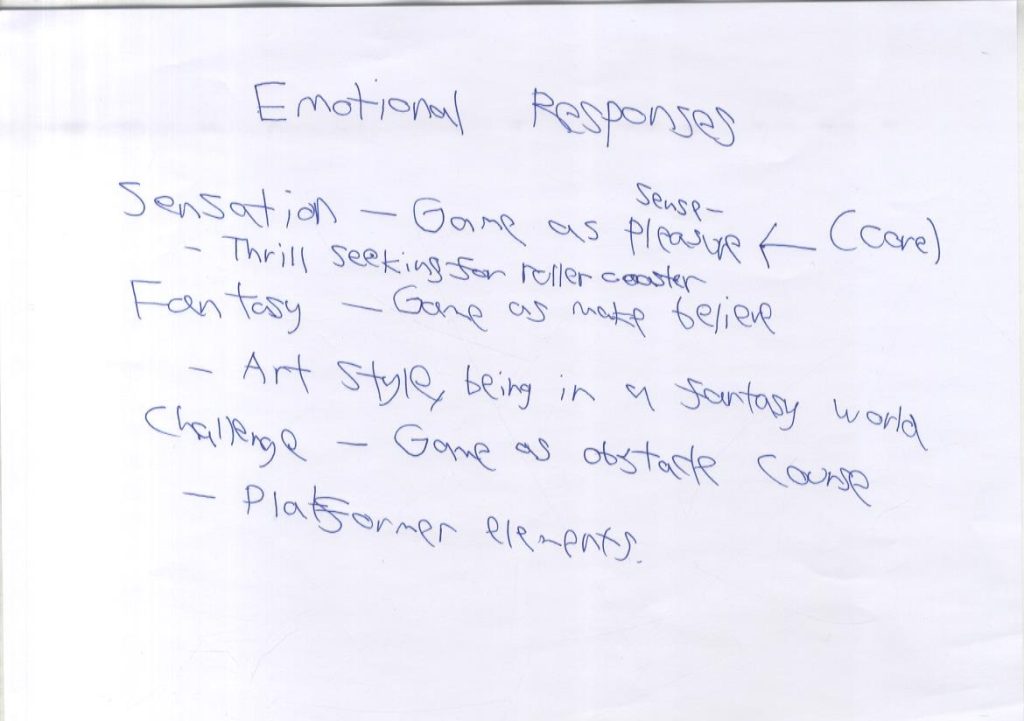 Emotional Responses
Sensation – Game as sense-pleasure ← (core)
- Thrill seeking for roller coaster
Fantasy – Game as make believe
- Art style, being in a fantasy world
Challenge – Game as obstacle course
- Platformer elements.